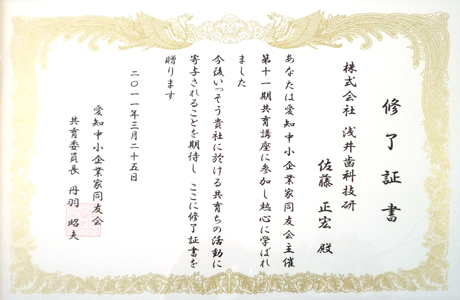 修了証書
株式会社 浅井歯科技研
佐藤 正宏 殿
あなたは愛知中小企業家同友会主催
第十一期共育講座に参加し熱心に学ばれ
ました
今後いっそう貴社に於ける共育ちの活動に
寄与されることを期待し ここに修了証書を
贈ります
二〇一一年三月二十五日
愛知中小企業家同友会
共育委員長 丹羽 昭夫